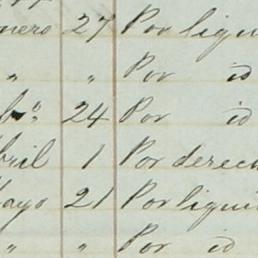 nero 27 Por liqui
" " Por id
bº 24 Por id
bril 1 Por derech
Mayo 21 Por liqui
" " Por id